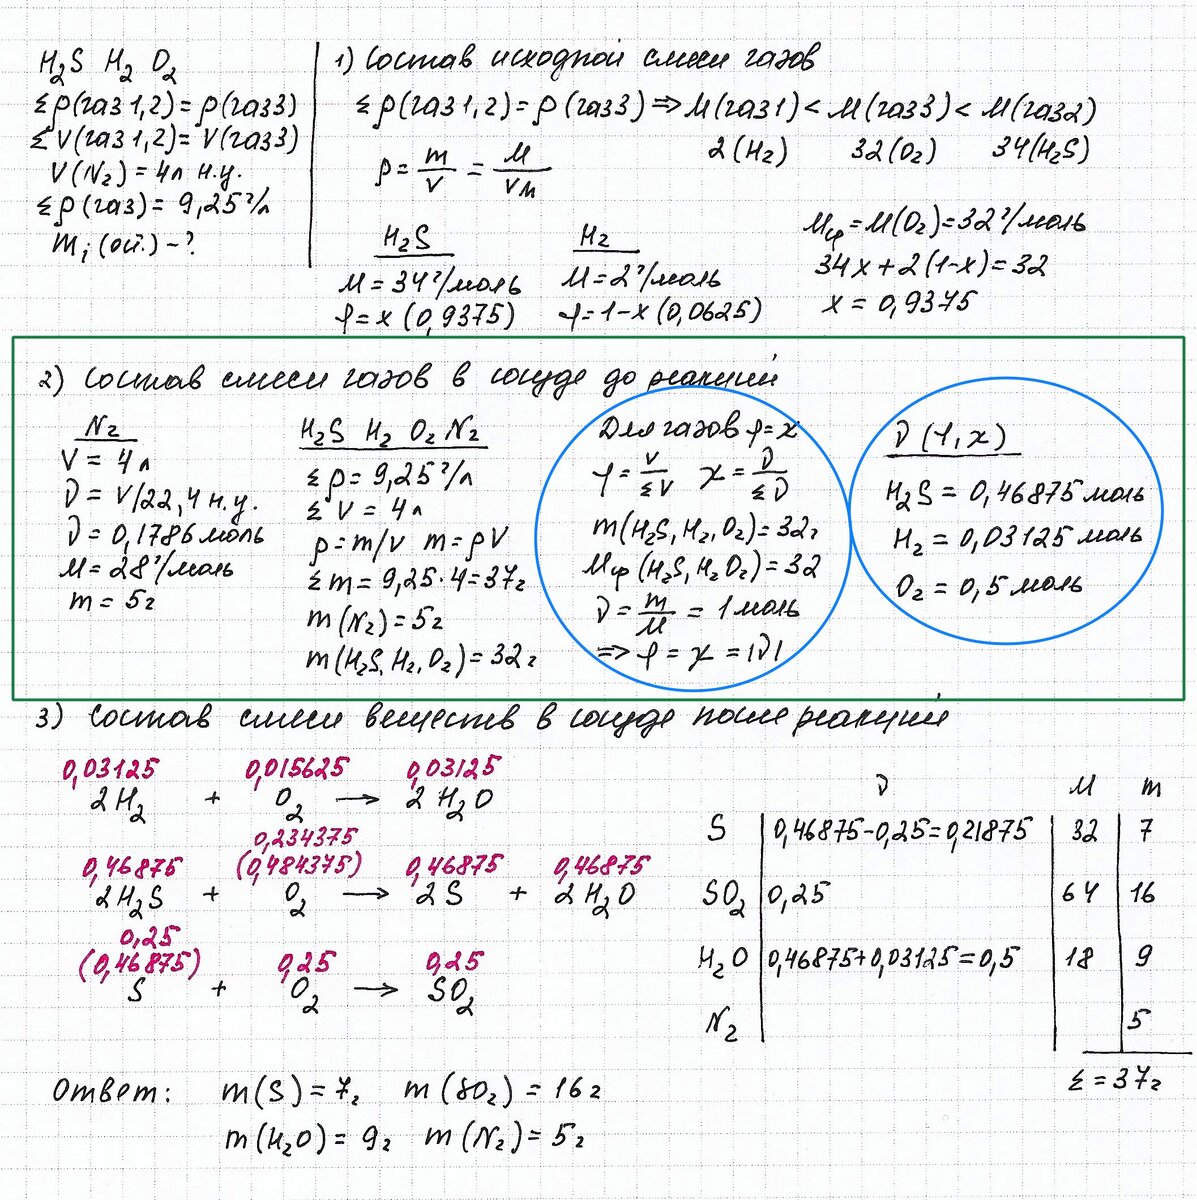 H₂S H₂ O₂
Σρ(газ1,2)=ρ(газ3)
ΣV(газ1,2)=V(газ3)
V(N₂)=4л н.у.
Σρ(газ)=9,25г/л
mᵢ(ост.)-?
1) Состав исходной смеси газов
Σρ(газ1,2)=ρ(газ3)⇒M(газ1)<M(газ3)<M(газ2)
2(H₂) 32(O₂) 34(H₂S)
ρ=m/V=M/Vм
H₂S
M=34г/моль
φ=x(0,9375)
H₂
M=2г/моль
φ=1-x(0,0625)
Mср=M(O₂)=32г/моль
34x+2(1-x)=32
x=0,9375
2) Состав смеси газов в сосуде до реакций
N₂
V=4л
ν=V/22,4 н.у.
ν=0,1786 моль
M=28г/моль
m=5г
H₂S H₂ O₂ N₂
Σρ=9,25г/л
ΣV=4л
ρ=m/V m=ρV
Σm=9,25·4=37г
m(N₂)=5г
m(H₂S,H₂,O₂)=32г
Для газов φ=χ
φ=V/ΣV χ=ν/Σν
m(H₂S,H₂,O₂)=32г
Mср(H₂S,H₂O₂)=32
ν=m/M=1 моль
⇒φ=χ=|ν|
ν(φ,χ)
H₂S=0,46875 моль
H₂=0,03125 моль
O₂=0,5 моль
3) Состав смеси веществ в сосуде после реакций
0,03125 0,015625 0,03125
2H₂ + O₂ → 2H₂O
0,234375
0,46875 (0,484375) 0,46875 0,46875
2H₂S + O₂ → 2S + 2H₂O
0,25
(0,46875) 0,25 0,25
S + O₂ → SO₂
ν M m
S 0,46875-0,25=0,21875 32 7
SO₂ 0,25 64 16
H₂O 0,46875+0,03125=0,5 18 9
N₂ 5
Σ=37г
Ответ: m(S)=7г m(SO₂)=16г
m(H₂O)=9г m(N₂)=5г